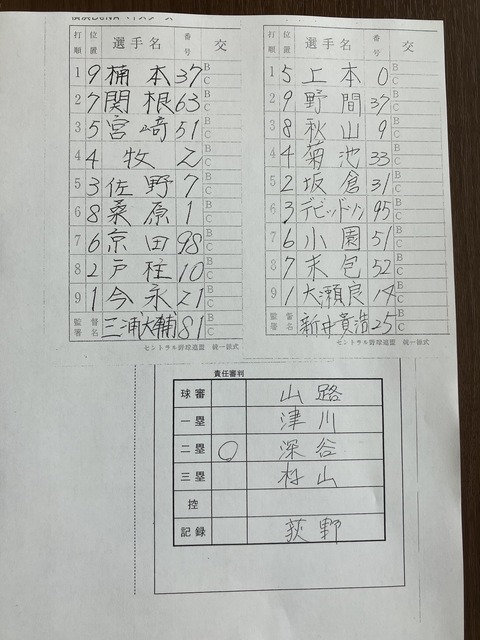 横浜DeNAベイスターズ
打順 位置 選手名 番号 交
1 9 楠本 37 B C
2 7 関根 63 B C
3 5 宮﨑 51 B C
4 4 牧 2 B C
5 3 佐野 7 B C
6 8 桑原 1 B C
7 6 京田 98 B C
8 2 戸柱 10 B C
9 1 今永 21 B C
監督署名 三浦大輔 81
セントラル野球連盟 統一様式
打順 位置 選手名 番号 交
1 5 上本 0 B C
2 9 野間 37 B C
3 8 秋山 9 B C
4 4 菊池 33 B C
5 2 坂倉 31 B C
6 3 デビッドソン 95 B C
7 6 小園 51 B C
8 7 末包 52 B C
9 1 大瀬良 14 B C
監督署名 新井貴浩 25
セントラル野球連盟 統一様式
責任審判
球審 山路
一塁 津川
二塁 ○ 深谷
三塁 村山
控
記録 荻野